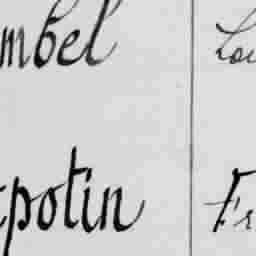 mbel Lou
potin Fr